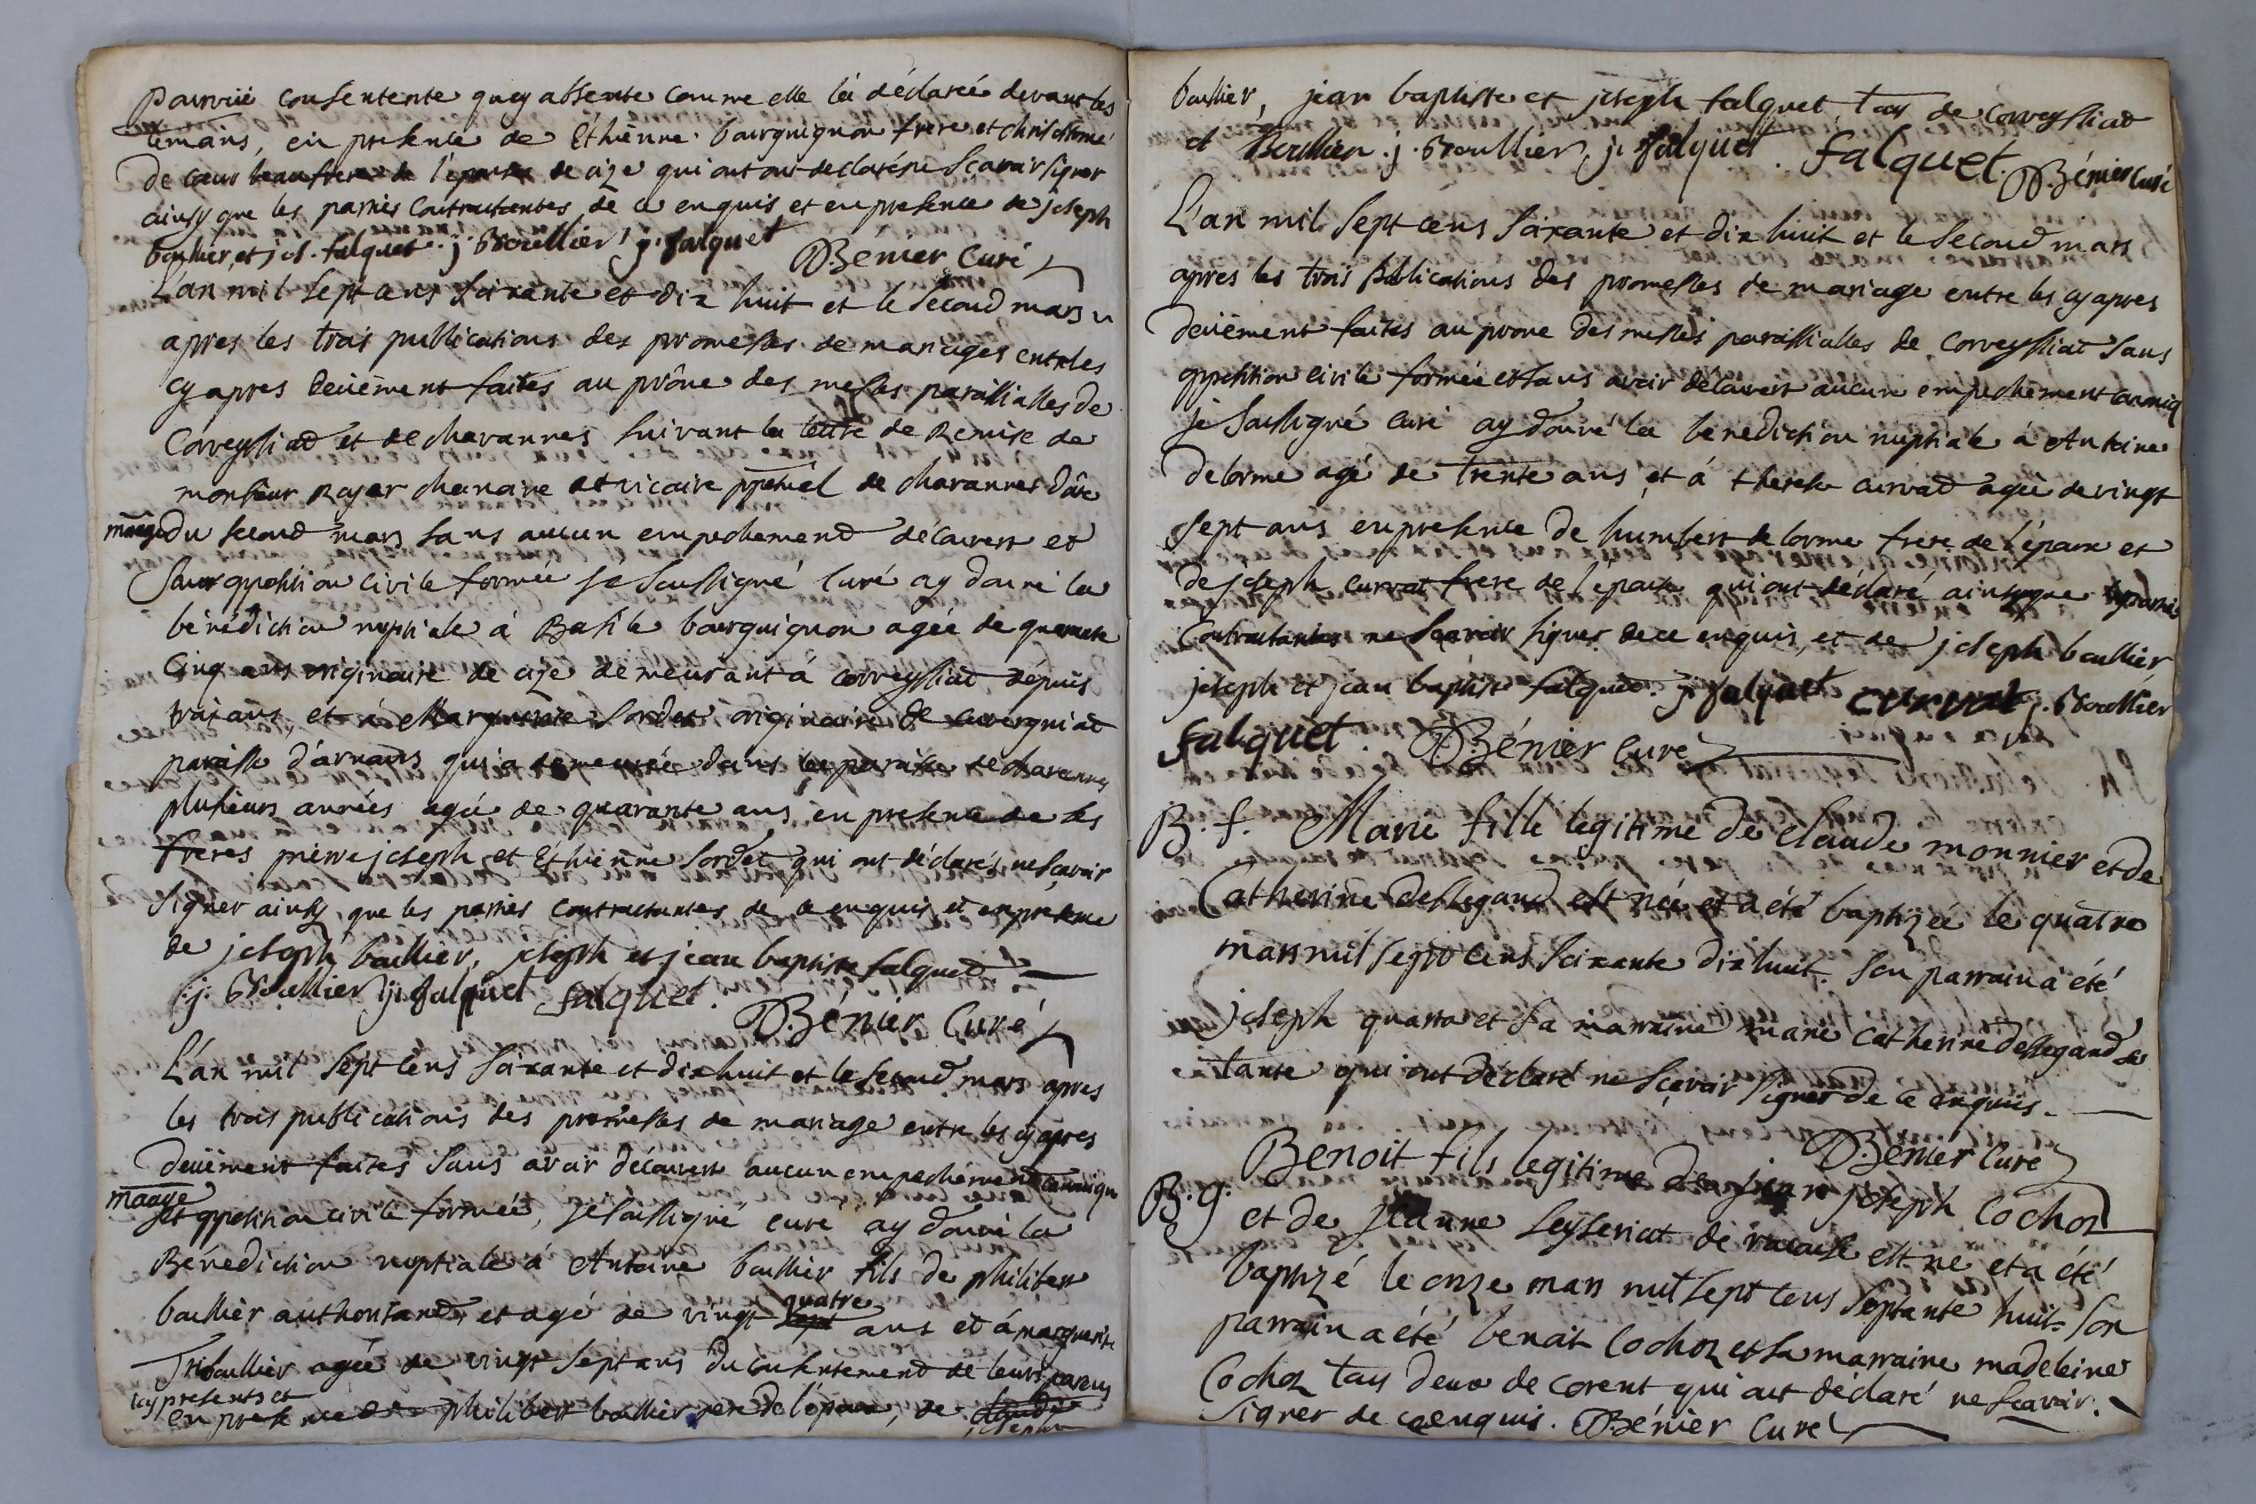 pourvüe consentente quoy absente comme elle l'a déclarée devant les
témains, en presence de Ethienne bourguignon frere et chrisostome
De cour beaufrere de l'epouse de cize qui ont ont declarés ne scavoir signer
ainsy que les parties contractantes de ce enquis et en presence de joseph
boullier, et jos. falquet. j. Boullier j. falquet D. Bénier Curé
L'an mil sept cens soixante et dix huit et le second mars
apres les trois publications des promesses de mariages entre les
cy apres deüement faites au prône des messes paroissialles de
Corveyssiad et de chavannes suivant la lettre de Remise de
monsieur Rojer chanoine et vicaire ppetuel de chavannes dâte
mariage Du second mars sans aucun empechement découvert et
sans oppotition civile formée je soussigné curé ay donné la
bénédiction nuptiale à Basile bourguignon agée de quarante
Cinq ans originaire de cize demeurant à Corveyssiad depuis
trois ans et à Marguerite Sordet originaire de cuvergniat
paroisse d'arnans qui a demeurée dans la paroisse de chavannes
plusieurs années agée de quarante ans en presence de ses
freres pierre joseph et Ethienne Sordet qui ont déclarés ne scavoir
signer ainsy que les parties contractantes de ce enquis et en presence
de joseph boullier, joseph et jean baptiste falquet
j. Boullier j. falquet falquet. D. Bénier Curé
L'an mil sept cens soixante et dix huit et le second mars apres
les trois publications des promesses de mariage entre les cy apres
deüement faites sans avoir découvert aucun empechement canonique
mariage
et oppotition civile formée, je soussigné curé ay donné la
Bénédiction nuptiale à Antoine boullier fils de philibert
boullier authorisand, et agé de vingt sept quatre ans et à marguerite
Triboullier agée de vingt sept ans du consentement de leurs parens
icy presents et
en presence de philibert boullier pere de l'époux, de claude
joseph
boullier, jean baptiste et joseph falquet, tous de Corveyssiad
et Boullier. j. Boullier j. falquet. falquet. D. Bénier Curé
L'an mil sept cens soixante et dix huit et le second mars
apres les trois publications des promesses de mariage entre les cy apres
deüement faites au prone des messes paroissialles de Corveyssiad sans
oppotition civile formée et sans avoir découvert aucun empechement canoniq
je soussigné curé ay donné la benediction nuptiale à Antoine
delorme agé de trente ans, et à therese curvat agée de vingt
sept ans en presence de humbert delorme frere de l'époux et
de joseph curvat frere de l'epouse qui ont déclaré ainsy que les parties
Contractantes ne scavoir signer de ce enquis, et de joseph boullier
joseph et jean baptiste falquet j. falquet curvat j. Boullier
falquet. D. Bénier Cure
B. f. Marie fille legitime de Claude monnier et de
Catherine dessegand est née et a été baptizée le quatre
mars mil sept cens soixante dix huit. son parrain a été
joseph quarra et sa marraine marie Catherine dessegand sa
tante qui ont déclaré ne sçavoir signer de ce enquis.
D. Bénier Curé
B. g. Benoit fils legitime de jean joseph Cochoz
et de jeanne seyseriat de racouse est né et a été
baptizé le onze mars mil sept cens septante huit. son
parrain a été benoit Cochoz et sa marraine madeleine
Cochoz tous deux de corent qui ont déclaré ne scavoir.
signer de ce enquis. D. Bénier Curé